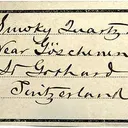 Smoky Quartz
Near Göschenen
St Gothard
Switzerland